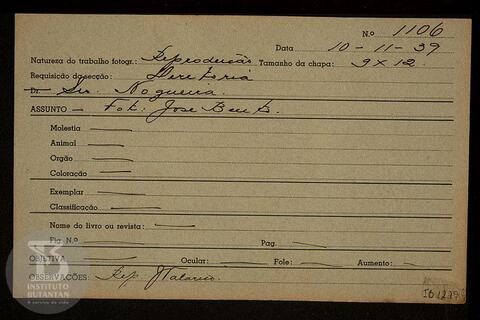 N.º 1106
Data 10-11-39
Natureza do trabalho fotogr.: Reproducção Tamanho da chapa: 9 x 12.
Requisição da secção: Directoria
Dr. Snr. Nogueira.
ASSUNTO — Fot: José Bento.
Molestia
Animal
Orgão
Coloração
Exemplar
Classificação
Nome do livro ou revista:
Fig. N.º Pag.
OBJETIVA Ocular: Fole: Aumento:
OBSERVAÇÕES: Rep:
INSTITUTO
BUTANTAN
A serviço da vida